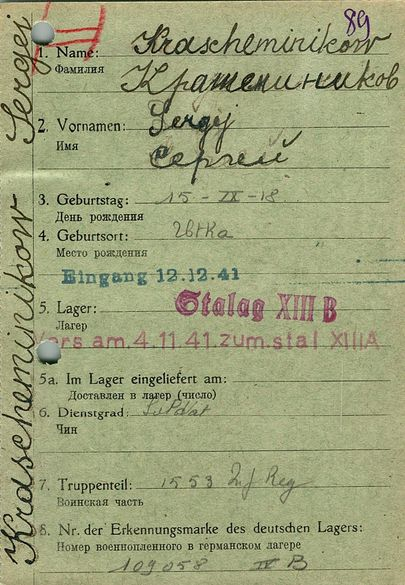 89
II
1. Name: Krascheminikow
Фамилия Крашенинников
2. Vornamen: Sergej
Имя Сергей
3. Geburtstag: 15-IX-18
День рождения
4. Geburtsort:
Место рождения
Eingang 12.12.41
5. Lager: Stalag XIII B
Лагер
Vers am. 4.11 41. zum. stal XIIIA
5a. Im Lager eingeliefert am:
Доставлен в лагер (число)
6. Dienstgrad: Soldat
Чин
7. Truppenteil: 1553 Inf Reg
Воинская часть
8. Nr. der Erkennungsmarke des deutschen Lagers:
Номер военнопленного в германском лагере
109058 IV B
Krascheminikow Sergej